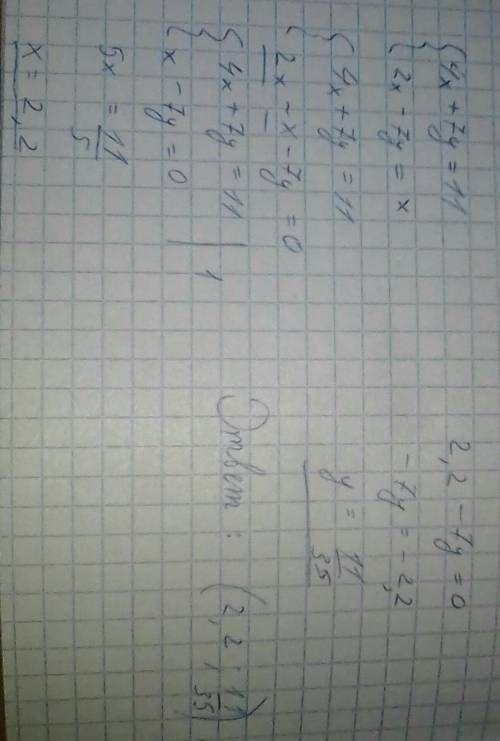 { 4x + 7y = 11
{ 2x - 7y = x
{ 4x + 7y = 11
{ 2x - x - 7y = 0
{ 4x + 7y = 11 | 1
{ x - 7y = 0
5x = 11/5
x = 2,2
2,2 - 7y = 0
-7y = -2,2
y = 11/35
Ответ: (2,2; 11/35)